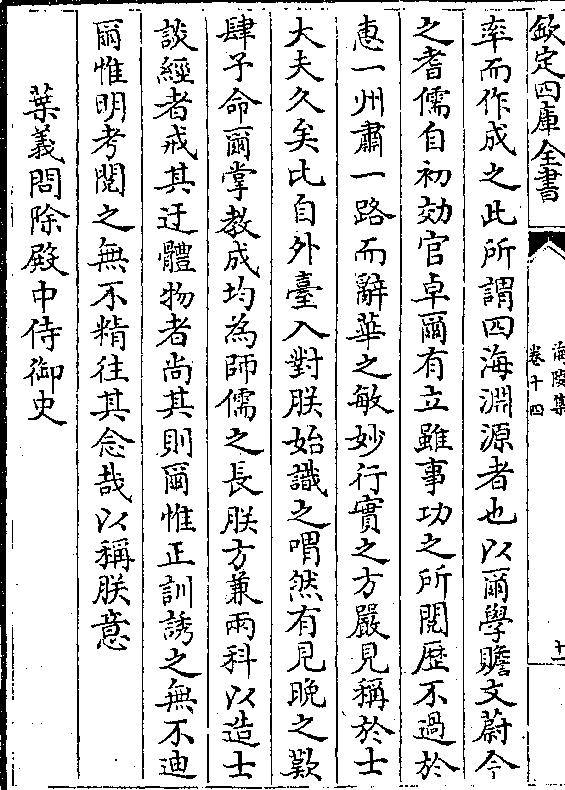 欽定四庫全書
海陵集
卷十四
十一
率而作成之此所謂四海淵源者也以爾學贍文蔚今
之耆儒自初効官卓爾有立雖事功之所閱歷不過於
惠一州肅一路而辭華之敏妙行實之方嚴見稱於士
大夫久矣比自外臺入對朕始識之喟然有見晚之歎
肆予命爾掌教成均為師儒之長朕方兼兩科以造士
談經者戒其迂體物者尚其則爾惟正訓誘之無不迪
爾惟明考閱之無不精往其念哉以稱朕意
葉義問除殿中侍御史